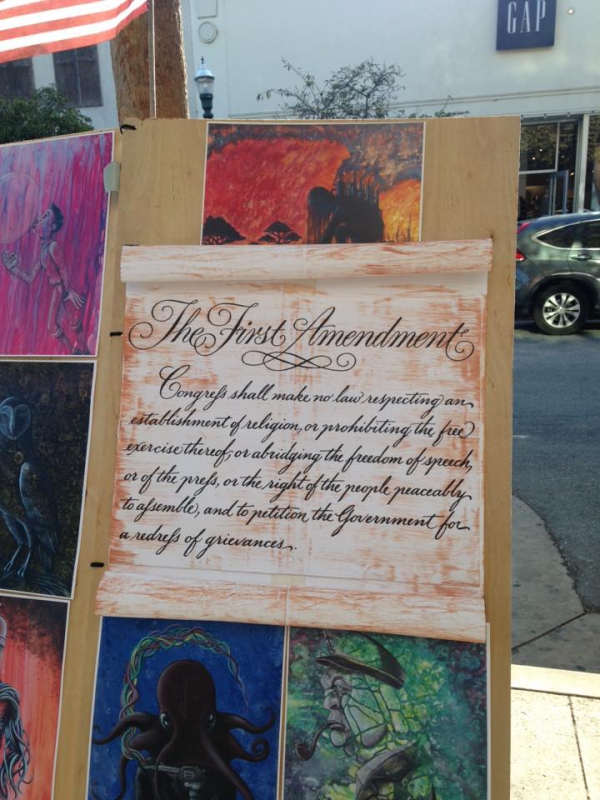 GAP
The First Amendment
Congreſs shall make no law respecting an
establishment of religion, or prohibiting the free
exercise thereof; or abridging the freedom of speech,
or of the preſs, or the right of the people peaceably
to aſsemble, and to petition the Government for
a redreſs of grievances.